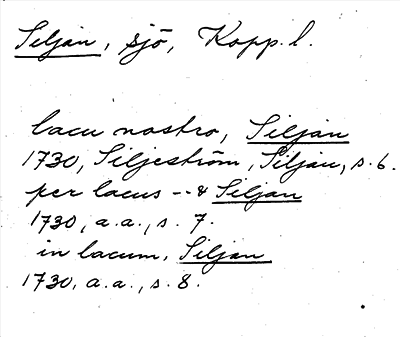 Siljan, sjö, Kopp. l.
lacu nostro, Siljan
1730, Siljeström, Siljan, s. 6.
per lacus -- & Siljan
1730, a.a., s. 7.
in lacum, Siljan
1730, a.a., s. 8.